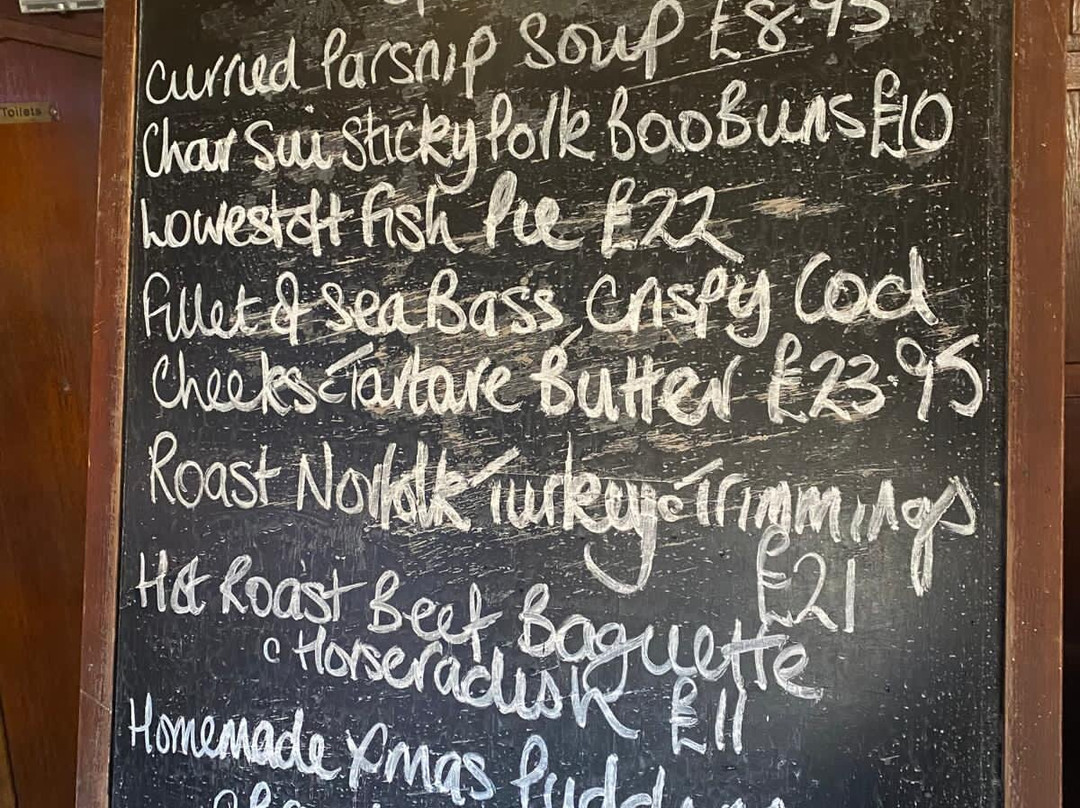 Toilets
Curried Parsnip Soup £8.95
Char Sui Sticky Pork Bao Buns £10
Lowestoft Fish Pie £22
Fillet of Sea Bass, Crispy Cod
Cheeks c Tartare Butter £23.95
Roast Norfolk Turkey c Trimmings
£21
Hot Roast Beef Baguette
c Horseradish £11
Homemade Xmas Pudding